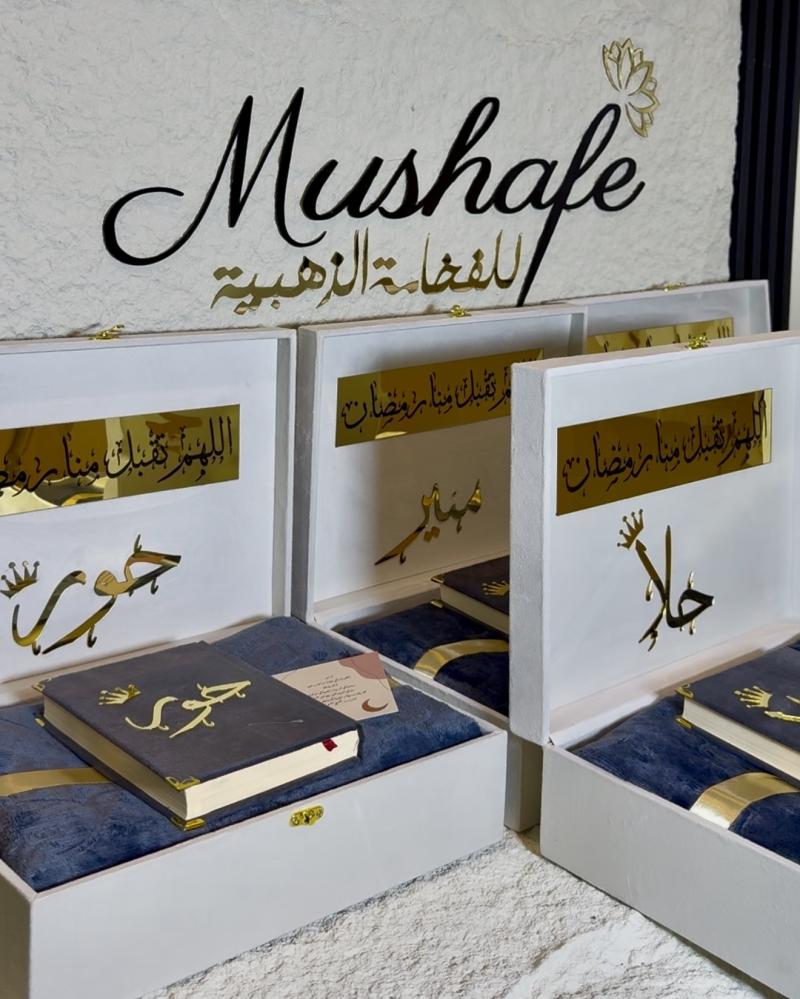 Mushafe
للفخامة الذهبية
اللهم تقبل منا رمضان
حور
حور
اللهم تقبل منا رمضان
منير
اللهم تقبل منا رمضان
حلا